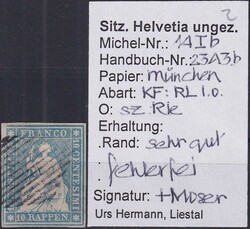 2
Sitz. Helvetia ungez.
Michel-Nr.: 14Ib
Handbuch-Nr.: 23A3.b
Papier: münchen
Abart: KF: RL l.o.
O: sz. Rte
Erhaltung:
.Rand: sehr gut
fehlerfrei
Signatur: +Moser
Urs Hermann, Liestal
FRANCO
10 CENTESIMI
10 RAPPEN